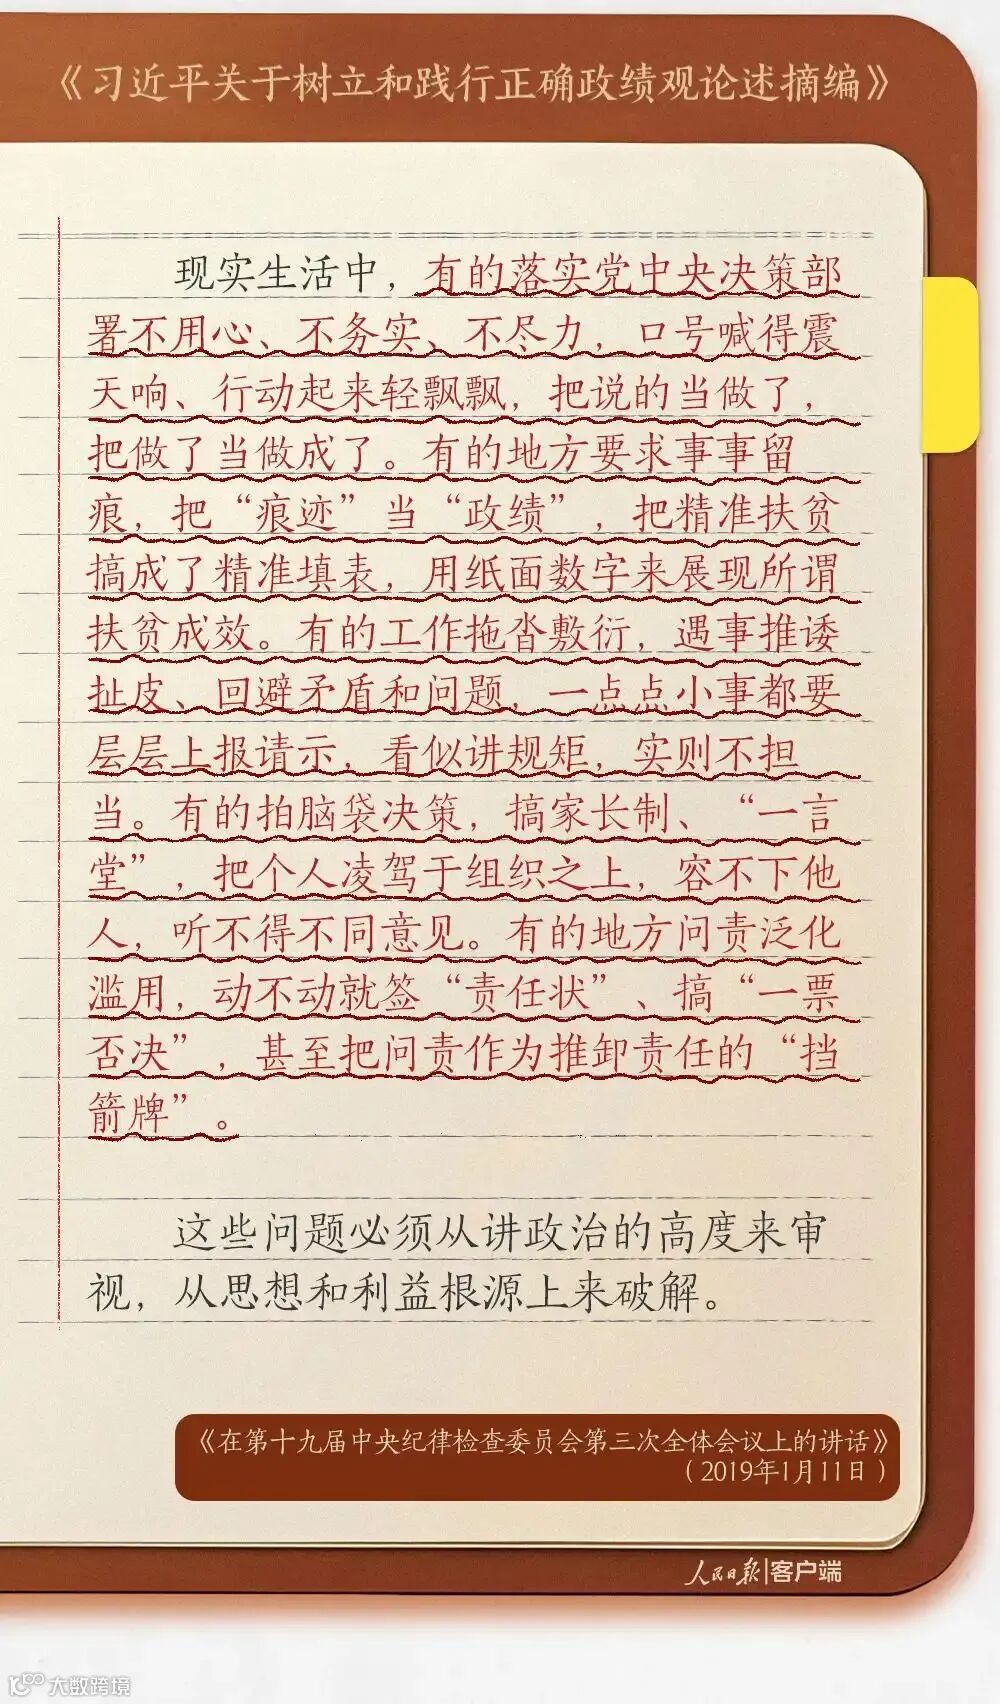 《习近平关于树立和践行正确政绩观论述摘编》
现实生活中，有的落实党中央决策部
署不用心、不务实、不尽力，口号喊得震
天响、行动起来轻飘飘，把说的当做了，
把做了当做成了。有的地方要求事事留
痕，把“痕迹”当“政绩”，把精准扶贫
搞成了精准填表，用纸面数字来展现所谓
扶贫成效。有的工作拖沓敷衍，遇事推诿
扯皮、回避矛盾和问题，一点点小事都要
层层上报请示，看似讲规矩，实则不担
当。有的拍脑袋决策，搞家长制、“一言
堂”，把个人凌驾于组织之上，容不下他
人，听不得不同意见。有的地方问责泛化
滥用，动不动就签“责任状”、搞“一票
否决”，甚至把问责作为推卸责任的“挡
箭牌”。
这些问题必须从讲政治的高度来审
视，从思想和利益根源上来破解。
《在第十九届中央纪律检查委员会第三次全体会议上的讲话》
（2019年1月11日）
人民日报|客户端
大数跨境